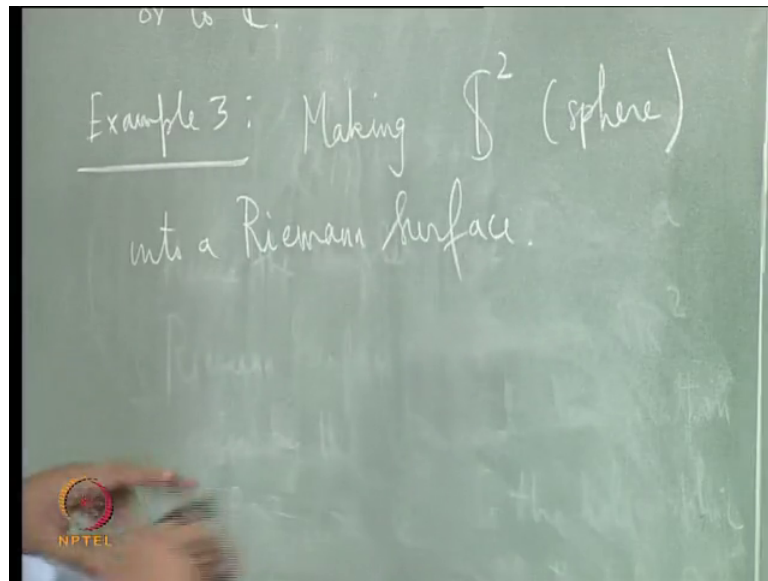 or to ℂ.
Example 3: Making 𝕊² (sphere)
into a Riemann Surface.
NPTEL